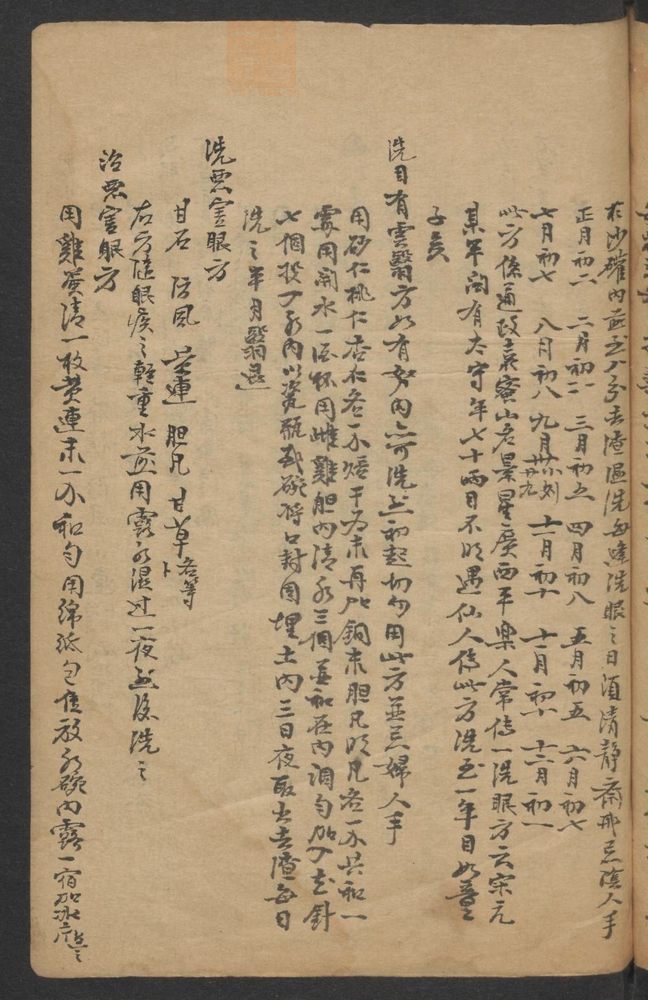 在沙罐內煎至八分去渣温洗每逢洗眼之日須清靜齋那忌陰人手
正月初六 二月初二 三月初五 四月初八 五月初五 六月初七
七月初七 八月初八 九月廿九 十月初十 十一月初十 十二月初一
此方係通政袁密山名景星廣西平樂人常傳一洗眼方云宋元
某年間有太守年七十兩目不明遇仙人傳此方洗至一年目如童
子矣
洗目有雲翳方如有努肉亦可洗並初起切勿用此方並忌婦人手
用砂仁桃仁杏仁各一个焙干為末再加銅末胆凡明凡各一个共和一
處用開水一酒杯用雌雞胆內清水三個並和在內調勻加丁皮針
七個投丁水內以瓷瓶或碗將口封固埋土內三日夜取出去渣每日
洗之半月翳退
洗惡害眼方
甘石 防風 黃連 胆凡 甘草各等
右方隨眼疾之輕重水煎用露水混过一夜然後洗之
治惡害眼方
用雞蛋清一枚黃連末一个和勻用綿紙包住放水碗內露一宿加冰